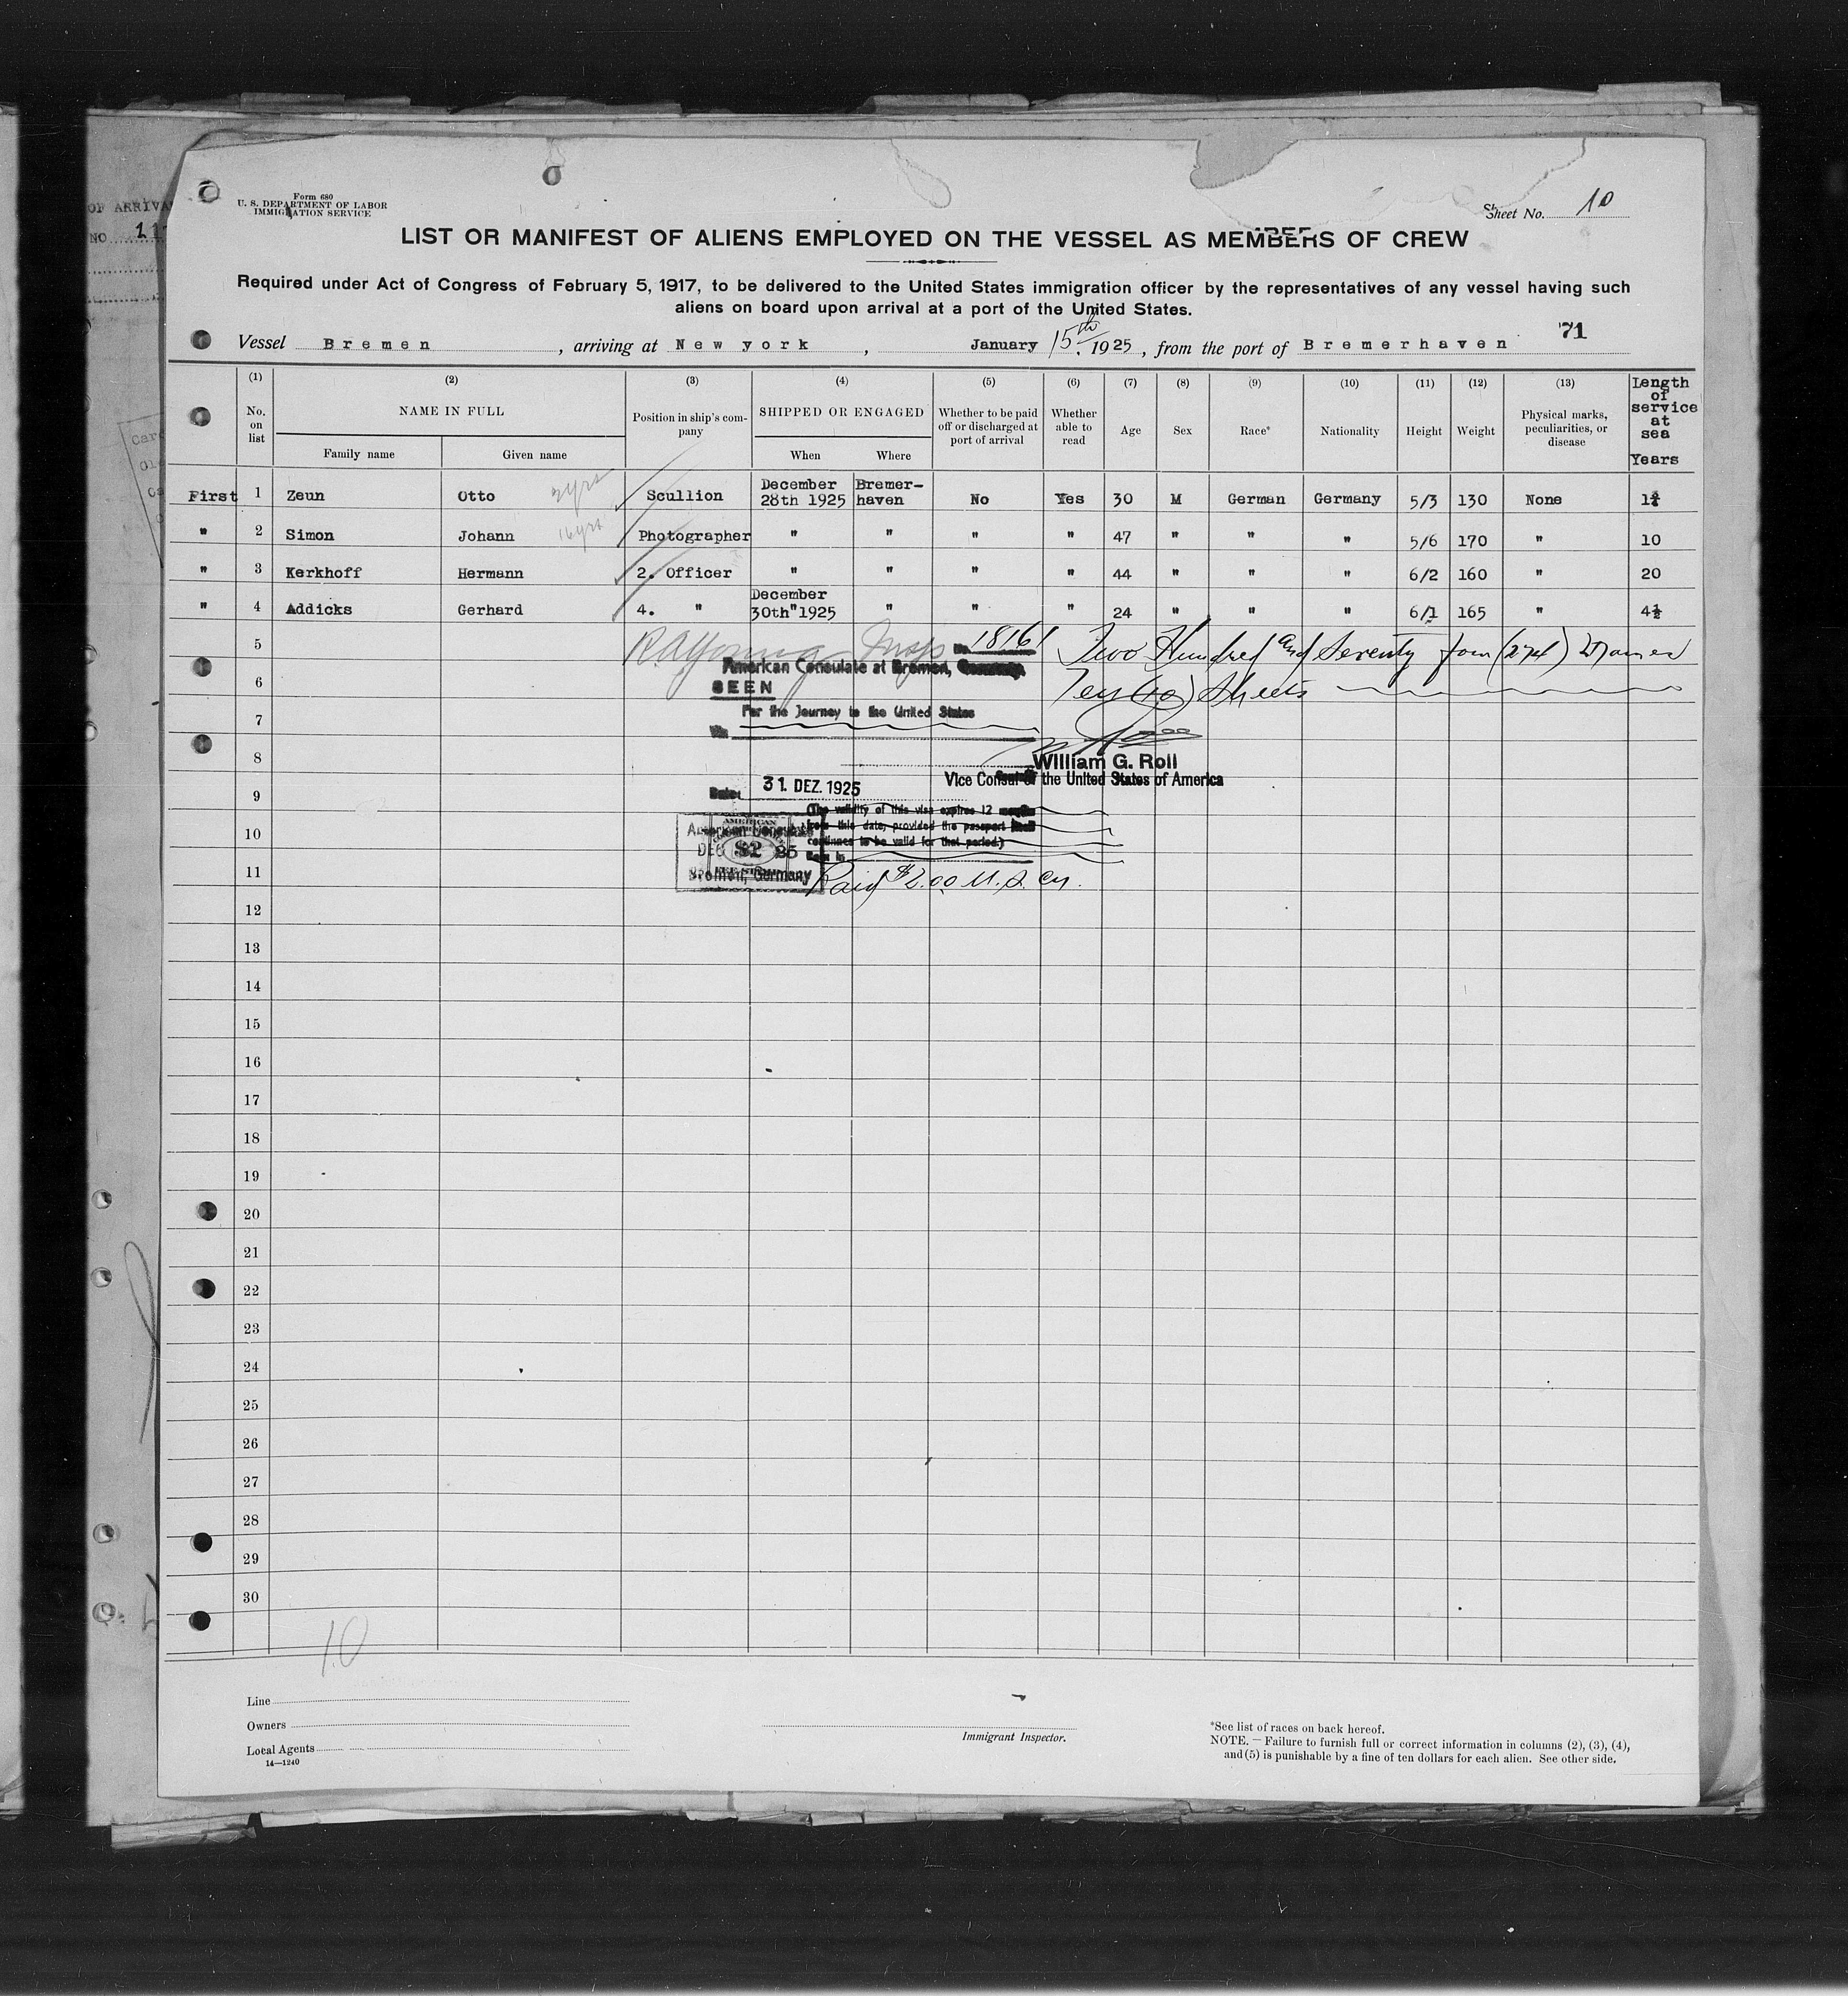 OF ARRIVA
NO 117
Form 680
U. S. DEPARTMENT OF LABOR
IMMIGRATION SERVICE
Sheet No. 10
LIST OR MANIFEST OF ALIENS EMPLOYED ON THE VESSEL AS MEMBERS OF CREW
Required under Act of Congress of February 5, 1917, to be delivered to the United States immigration officer by the representatives of any vessel having such
aliens on board upon arrival at a port of the United States.
71
Vessel Bremen, arriving at New york, January 15th 1925, from the port of Bremerhaven
(1) (2) (3) (4) (5) (6) (7) (8) (9) (10) (11) (12) (13) Length of service at sea Years
No. on list NAME IN FULL Position in ship's company SHIPPED OR ENGAGED Whether to be paid off or discharged at port of arrival Whether able to read Age Sex Race* Nationality Height Weight Physical marks, peculiarities, or disease
Family name Given name When Where
First 1 Zeun Otto 2yrs Scullion December 28th 1925 Bremer-haven No Yes 30 M German Germany 5/3 130 None
" 2 Simon Johann 16yrs Photographer " " " " 47 " " " 5/6 170 " 10
" 3 Kerkhoff Hermann 2. Officer " " " " 44 " " " 6/2 160 " 20
" 4 Addicks Gerhard 4. " December 30th"1925 " " " 24 " " " 6/1 165 " 4½
5
No. 18161 Two Hundred and Seventy four (274) Names
American Consulate at Bremen, Germany.
6
SEEN
Ten (10) Sheets
For the Journey to the United States
7
8
William G. Roll
Vice Consul of the United States of America
9
Date: 31. DEZ. 1925
(The validity of this visa expires 12 months
from this date, provided the passport itself
continues to be valid for that period.)
10
AMERICAN
American Consulate
DEC $2 25
Bremen, Germany
11
Paid $2.00 U.S. Cy.
12
13
14
15
16
17
18
19
20
21
22
23
24
25
26
27
28
29
30
10
Line
Owners
Local Agents
14—1240
Immigrant Inspector.
*See list of races on back hereof.
NOTE. — Failure to furnish full or correct information in columns (2), (3), (4),
and (5) is punishable by a fine of ten dollars for each alien. See other side.